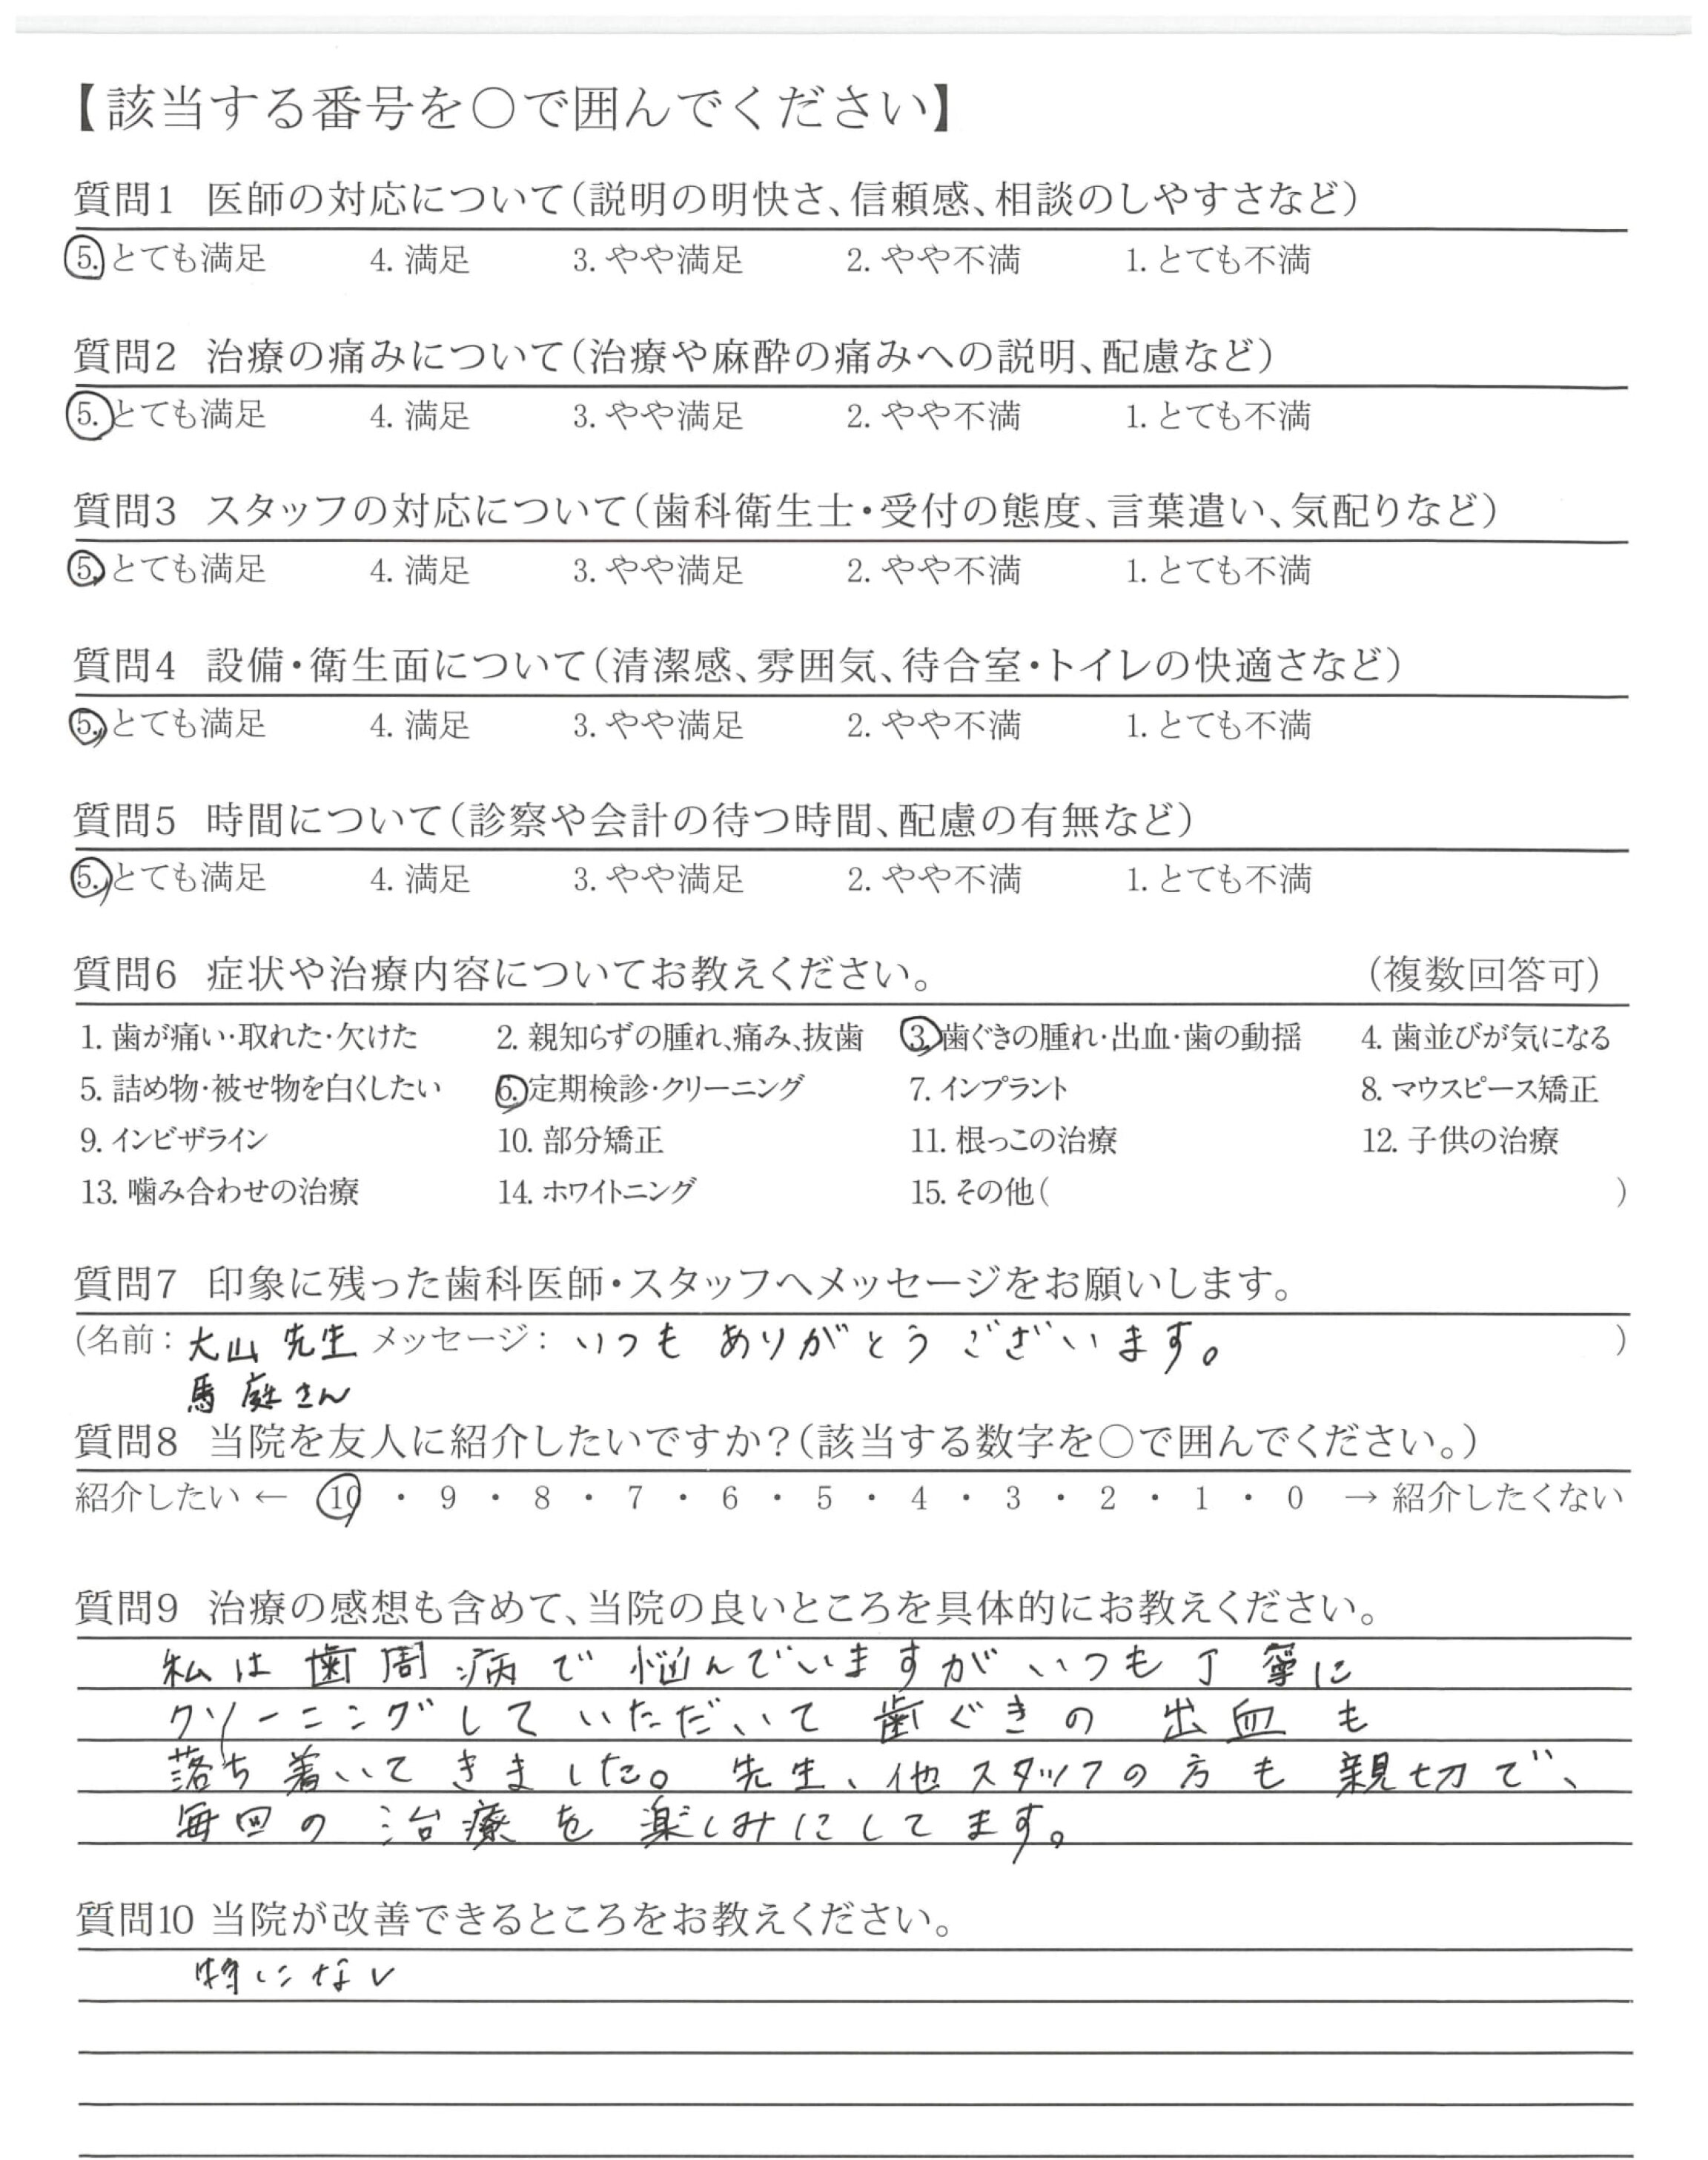 【該当する番号を○で囲んでください】
質問1 医師の対応について(説明の明快さ、信頼感、相談のしやすさなど)
5. とても満足 4. 満足 3. やや満足 2. やや不満 1. とても不満
質問2 治療の痛みについて(治療や麻酔の痛みへの説明、配慮など)
5. とても満足 4. 満足 3. やや満足 2. やや不満 1. とても不満
質問3 スタッフの対応について(歯科衛生士・受付の態度、言葉遣い、気配りなど)
5. とても満足 4. 満足 3. やや満足 2. やや不満 1. とても不満
質問4 設備・衛生面について(清潔感、雰囲気、待合室・トイレの快適さなど)
5. とても満足 4. 満足 3. やや満足 2. やや不満 1. とても不満
質問5 時間について(診察や会計の待つ時間、配慮の有無など)
5. とても満足 4. 満足 3. やや満足 2. やや不満 1. とても不満
質問6 症状や治療内容についてお教えください。 (複数回答可)
1. 歯が痛い・取れた・欠けた 2. 親知らずの腫れ、痛み、抜歯 3. 歯ぐきの腫れ・出血・歯の動揺 4. 歯並びが気になる
5. 詰め物・被せ物を白くしたい 6. 定期検診・クリーニング 7. インプラント 8. マウスピース矯正
9. インビザライン 10. 部分矯正 11. 根っこの治療 12. 子供の治療
13. 噛み合わせの治療 14. ホワイトニング 15. その他( )
質問7 印象に残った歯科医師・スタッフへメッセージをお願いします。
(名前: 大山 先生 メッセージ: いつも ありがとう ございます。 )
馬庭さん
質問8 当院を友人に紹介したいですか?(該当する数字を○で囲んでください。)
紹介したい ← 10 ・ 9 ・ 8 ・ 7 ・ 6 ・ 5 ・ 4 ・ 3 ・ 2 ・ 1 ・ 0 → 紹介したくない
質問9 治療の感想も含めて、当院の良いところを具体的にお教えください。
私は 歯周病で 悩んでいますが いつも丁寧に
クリーニングして いただいて 歯ぐきの 出血も
落ち着いて きました。 先生、他スタッフの方も 親切で、
毎回の 治療を 楽しみにしてます。
質問10 当院が改善できるところをお教えください。
特にない